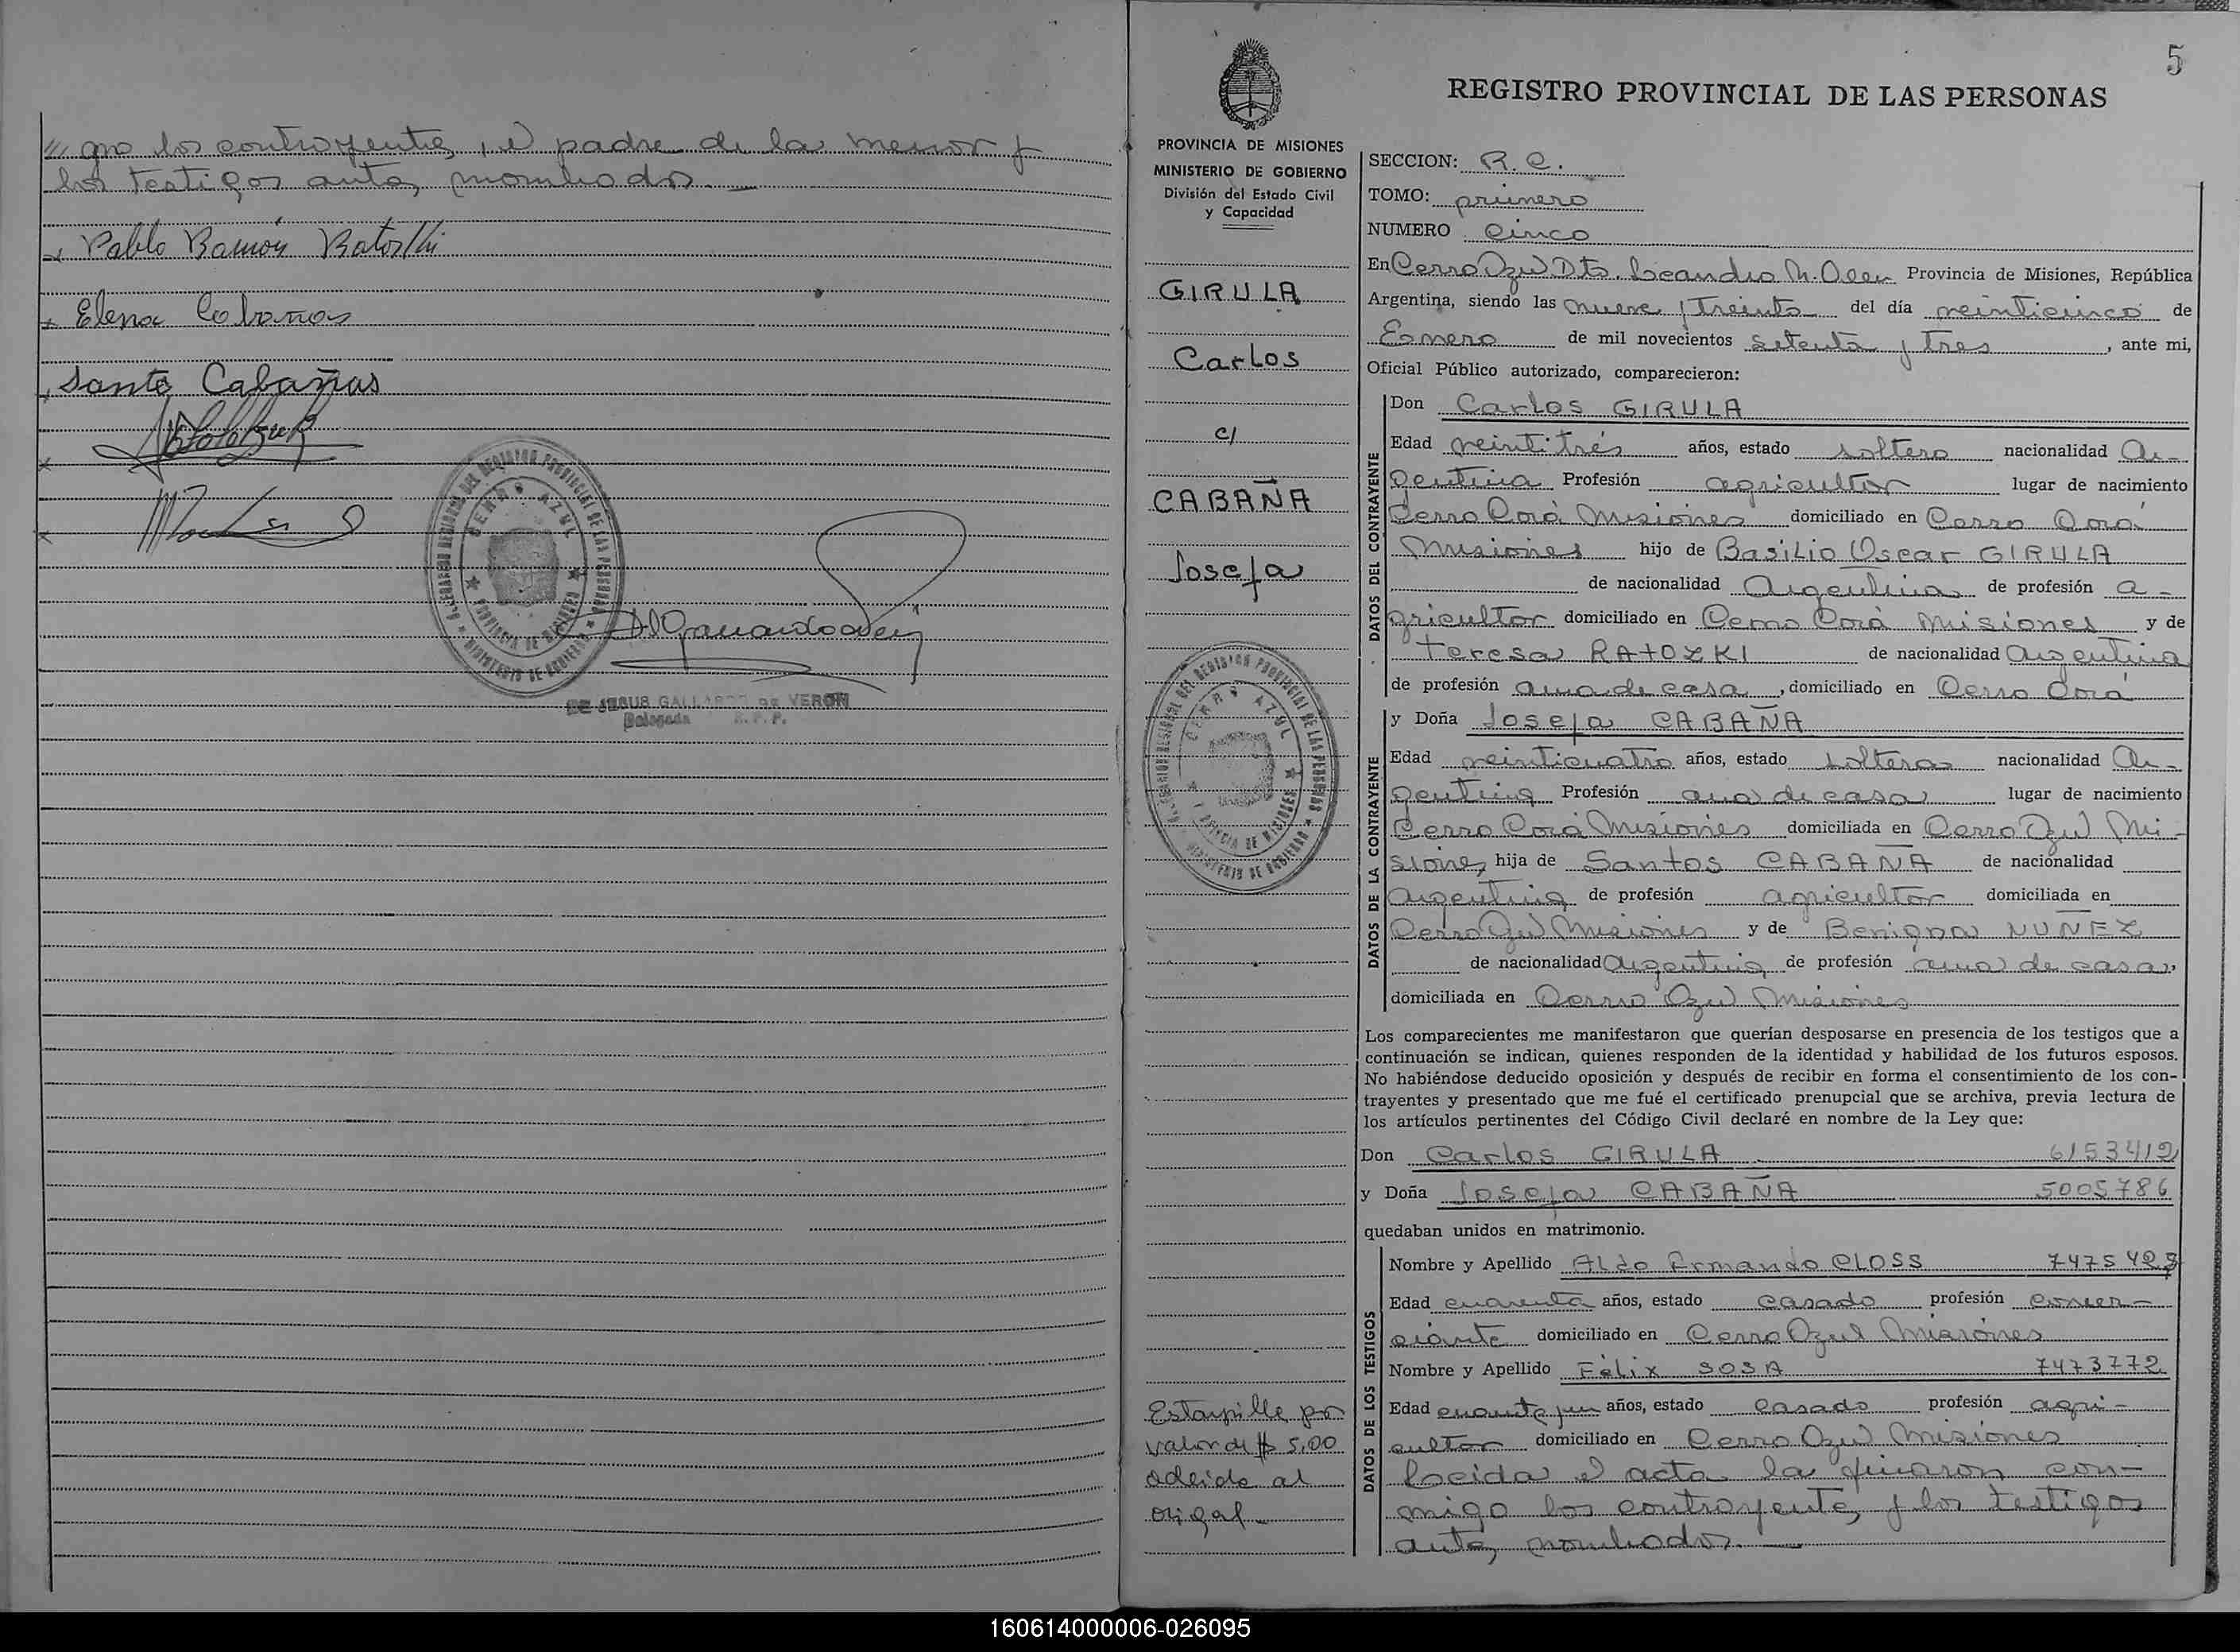 // go los contrayentes, el padre de la menor y
los testigos antes nombrados.—
Pablo Ramón
Elena Cabañas
Santo Cabañas
DELEGACION REGIONAL DEL REGISTRO PROVINCIAL DE LAS PERSONAS
CERRO AZUL
PROVINCIA DE MISIONES
MINISTERIO DE GOBIERNO
DE JESUS GALLARDO DE VERON
Delegada R. P. P.
5
PROVINCIA DE MISIONES
MINISTERIO DE GOBIERNO
División del Estado Civil
y Capacidad
GIRULA
Carlos
c/
CABAÑA
Josefa
DELEGACION REGIONAL DEL REGISTRO PROVINCIAL DE LAS PERSONAS
CERRO AZUL
PROVINCIA DE MISIONES
MINISTERIO DE GOBIERNO
Estampilla por
valor de $ 5,00
adeida al
origal-
REGISTRO PROVINCIAL DE LAS PERSONAS
SECCION: R.C.
TOMO: primero
NUMERO cinco
En Cerro Azul Dto. Leandro N. Alem Provincia de Misiones, República
Argentina, siendo las nueve y treinta del día veinticinco de
Enero de mil novecientos setenta y tres, ante mi,
Oficial Público autorizado, comparecieron:
DATOS DEL CONTRAYENTE
Don Carlos GIRULA
Edad veintitrés años, estado soltero nacionalidad Ar-
gentina Profesión agricultor lugar de nacimiento
Cerro Corá Misiones domiciliado en Cerro Corá
Misiones hijo de Basilio Oscar GIRULA
de nacionalidad Argentina de profesión a-
gricultor domiciliado en Cerro Corá Misiones y de
Teresa RATOZKI de nacionalidad Argentina
de profesión ama de casa, domiciliado en Cerro Corá
DATOS DE LA CONTRAYENTE
y Doña Josefa CABAÑA
Edad veinticuatro años, estado soltera nacionalidad Ar-
gentina Profesión ama de casa lugar de nacimiento
Cerro Corá Misiones domiciliada en Cerro Azul Mi-
siones hija de Santos CABAÑA de nacionalidad
Argentina de profesión agricultor domiciliada en
Cerro Azul Misiones y de Benigna NUÑEZ
de nacionalidad Argentina de profesión ama de casa,
domiciliada en Cerro Azul Misiones
Los comparecientes me manifestaron que querían desposarse en presencia de los testigos que a
continuación se indican, quienes responden de la identidad y habilidad de los futuros esposos.
No habiéndose deducido oposición y después de recibir en forma el consentimiento de los con-
trayentes y presentado que me fué el certificado prenupcial que se archiva, previa lectura de
los artículos pertinentes del Código Civil declaré en nombre de la Ley que:
Don Carlos GIRULA 6153412
y Doña Josefa CABAÑA 5005786
quedaban unidos en matrimonio.
DATOS DE LOS TESTIGOS
Nombre y Apellido Aldo Armando CLOSS
Edad cuarenta años, estado casado profesión comer-
ciante domiciliado en Cerro Azul Misiones
Nombre y Apellido Félix SOSA 7473772
Edad cuarenta y un años, estado casado profesión agri-
cultor domiciliado en Cerro Azul Misiones
Leeida el acta la firmaron con-
migo los contrayentes y los testigos
antes nombrados.—
160614000006-026095